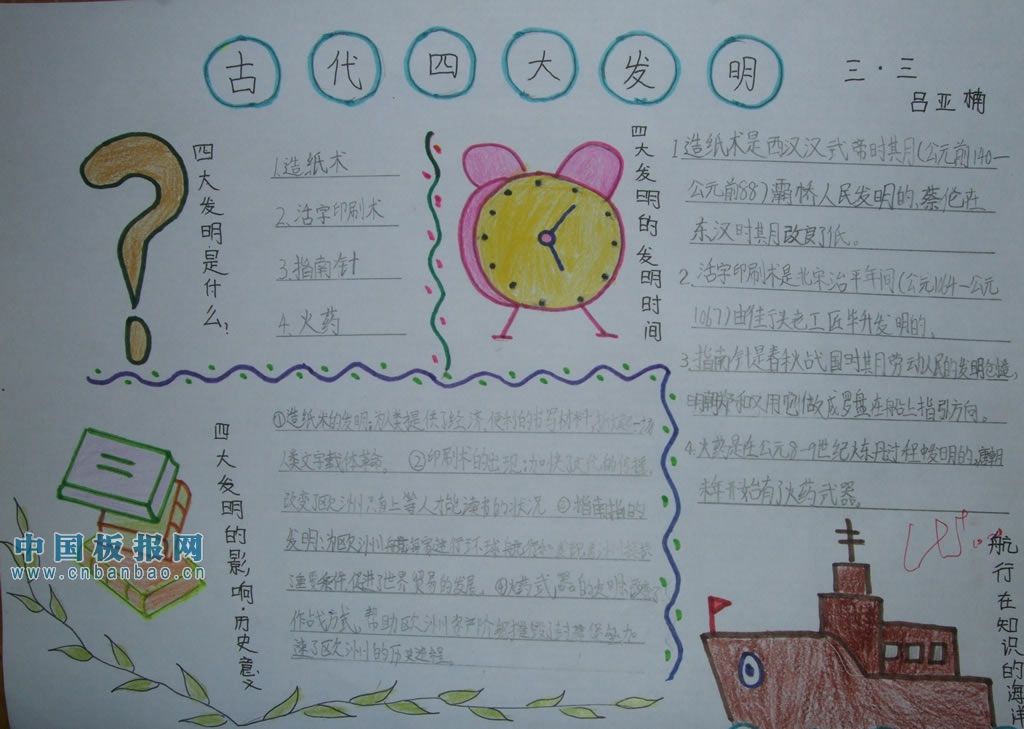 古代四大发明
三·三
吕亚楠
四大发明是什么?
1.造纸术
2.活字印刷术
3.指南针
4.火药
四大发明的发明时间
1造纸术是西汉汉武帝时其月(公元前140—
公元前88)灞桥人民发明的,蔡伦在
东汉时其月改良了纸。
2.活字印刷术是北宋治平年间(公元1064—公元
1067)由
工匠毕升发明的。
3.指南针是春秋战国时其月劳动人民的发明创造,
和又用它做成罗盘在船上指引方向。
4.火药是在公元8—9世纪
过程中发明的,唐朝
末年开始有了火药武器。
四大发明的影响·历史意义
①造纸术的发明:为人类提供了经济、便利的书写材料,
人类文字载体革命。 ②印刷术的出现:加快了文化的传播,
改变了欧洲只有上等人才能读书的状况
③指南指的
发明:为欧洲
航海家进行环球航行和
了重要条件,促进了世界贸易的发展。 ④火药武器的发明:改变了
作战方式,帮助欧洲资产阶级摧毁了封建保垒,加
速了欧洲的历史进程。
航行在知识的海洋
中国板报网
www.cnbanbao.cn